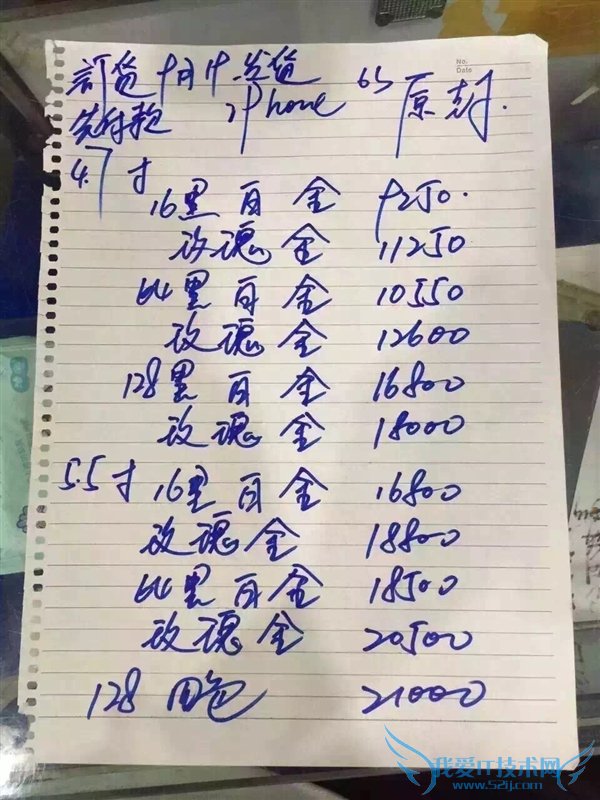 No.
Date
訂货 十月1十 发货
先付款 iphone 6S 原封.
4.7寸
16黑白金 9250.
玫瑰金 11250
64黑白金 10550
玫瑰金 12600
128黑白金 16800
玫瑰金 18000
5.5寸 16黑白金 16800
玫瑰金 18800
64黑白金 18500
玫瑰金 20500
128 四色 21000
我爱IT技术网
www.52ij.com